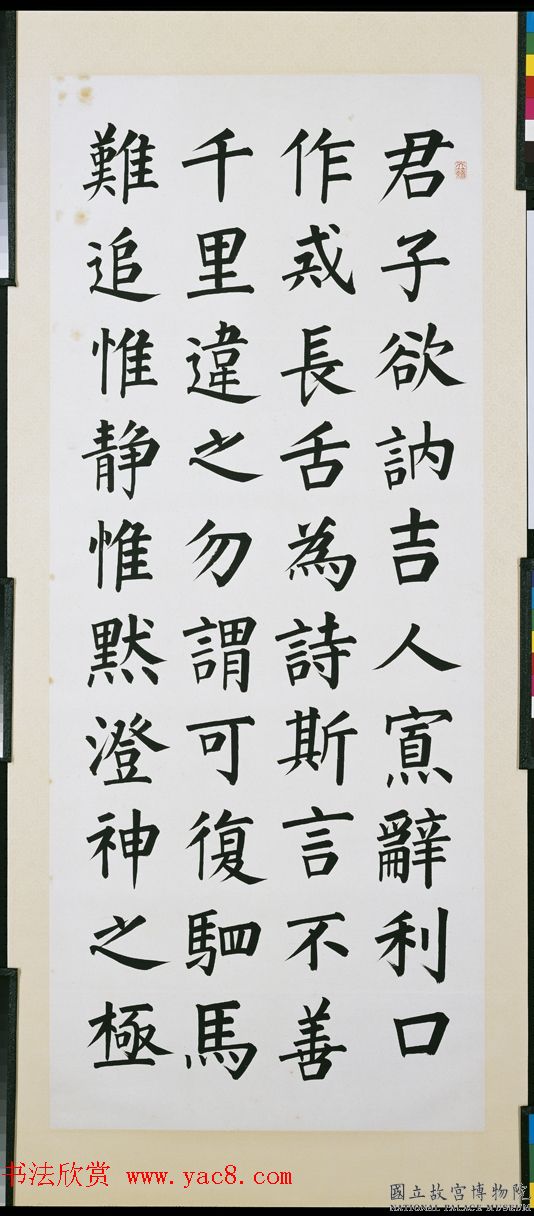 君子欲訥吉人寡辭利口
作戒長舌為詩斯言不善
千里違之勿謂可復駟馬
難追惟静惟默澄神之極
书法欣赏 www.yac8.com
國立故宮博物院
NATIONAL PALACE MUSEUM